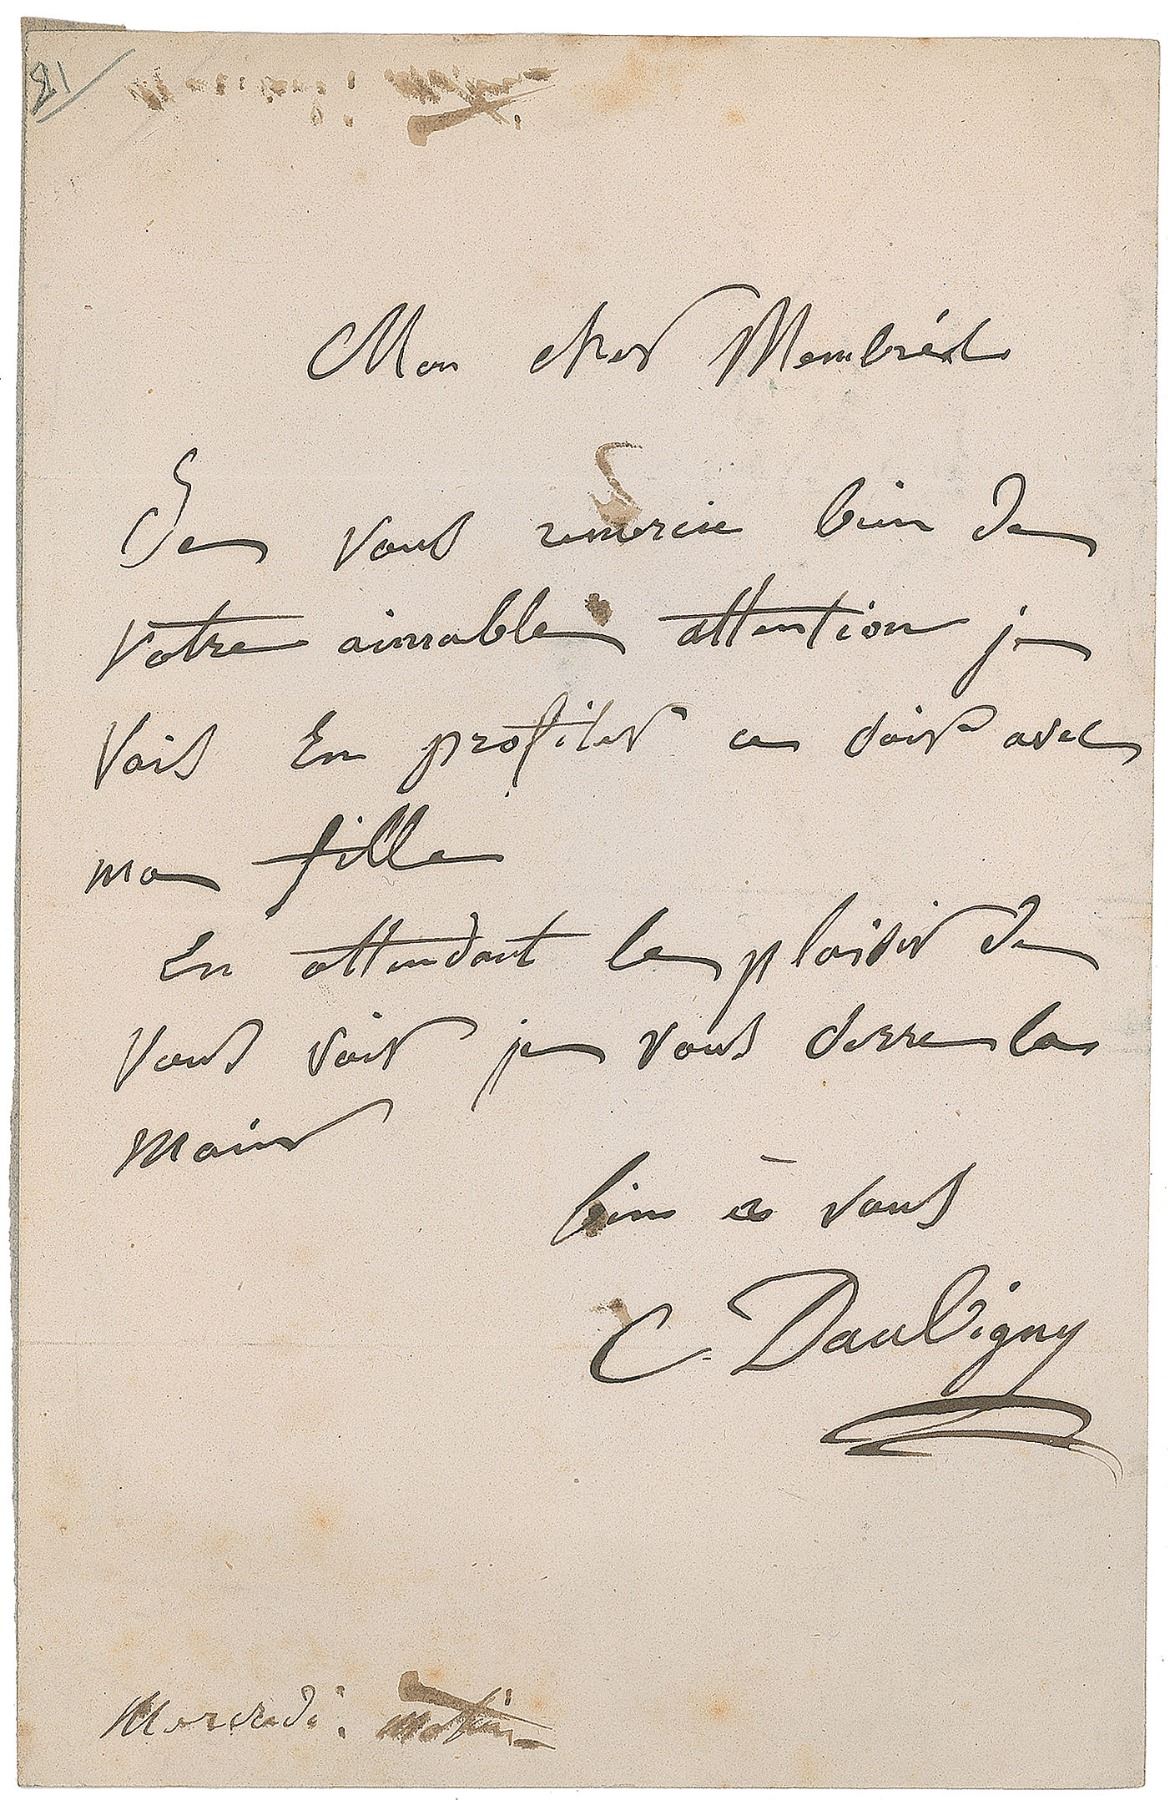 Mon cher Membrée
Je vous remercie bien de
votre aimable attention je
vais en profiter ce soir avec
ma fille
En attendant le plaisir de
vous voir je vous serre la
main
bien à vous
C. Daubigny
Mercredi. matin